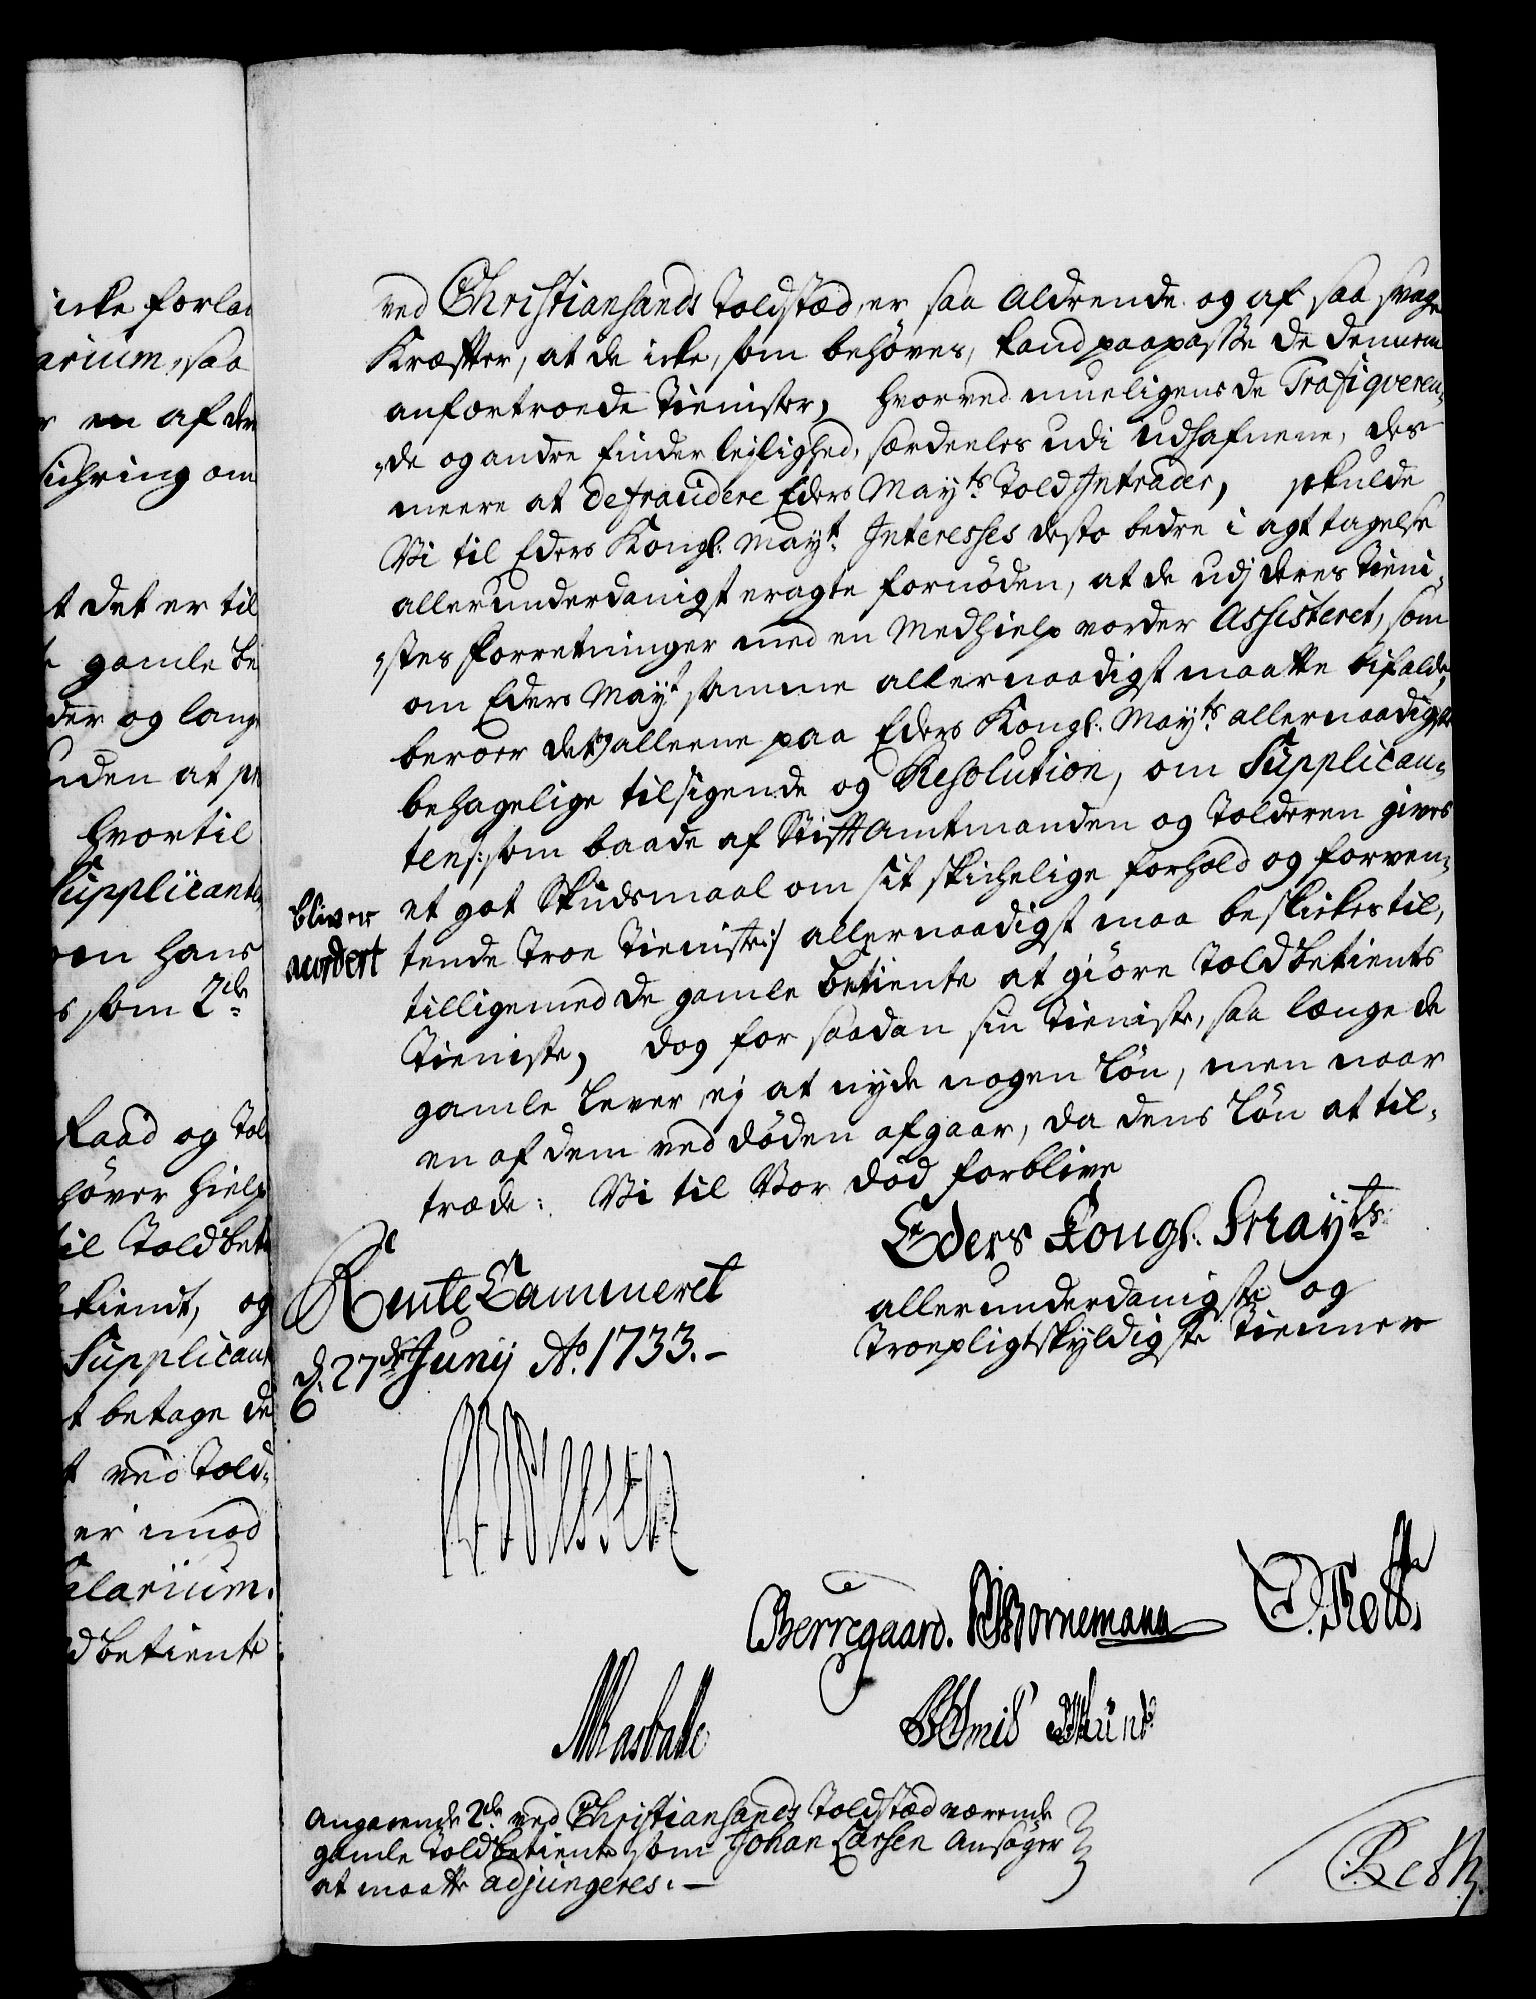 icke forla
arium, saa
r en af de
sichring om
t det er til
gamle be
der og lang
nden at
hvortil
Supplicante
hans
s som 2de
Raad og Tol
høver hielp
til Toldbet
betiendt, og
Supplicant
t betage de
t ved Told-
er imod
alarium.
dbetiente
ved Christiansands Toldstæd, er saa Aldrende og af saa svage
Kræffter, at de icke, som behøves, kand paapasse de dennem
anfortroede Tienister, hvorved mueligens de Trafiqveren-
de og andre finder lejlighed, særdeeles udi Udhafnene, des
meere at defraudere Eders Mayts Told Intrader, skulde
Vi til Eders Kongl. Mayt Interesses desto bedre i agttagelse
allerunderdanigst eragte fornøden, at de udj deres Tieni-
stes Forretninger med en Medhielp vorder Assisteret, som
om Eders Mayt samme allernaadigst maatte bifalde,
beroer det alleene paa Eders Kongl. Mayts allernaadigste
behagelige tilsigende og Resolution, om Supplican-
ten /: som baade af Stifftamtmanden og Tolderen gives
et got Skudsmaal om sit skichelige forhold og forven-
tende Troe Tieniste :/ allernaadigst maa beskickes til,
bliver
accordert
tilligemed de gamle betiente at giøre Toldbetients
Tieniste, dog for saadan sin Tieniste, saa længe de
gamle lever, ej at nyde nogen Løn, men naar
en af dem ved døden afgaar, da dens Løn at til-
træde: Vi til Vor død forblive
Eders Kongl. Mayts
Rente Cammeret
d. 27de Junij Ao. 1733.-
allerunderdanigste og
Troepligtskyldigste Tiennere
Berregaard. Bornemann
Angaaende 2de ved Christiansands Toldstæd værende
gamle Toldbetiente som Johan Larsen Ansøger
at maatte adjungeres.-